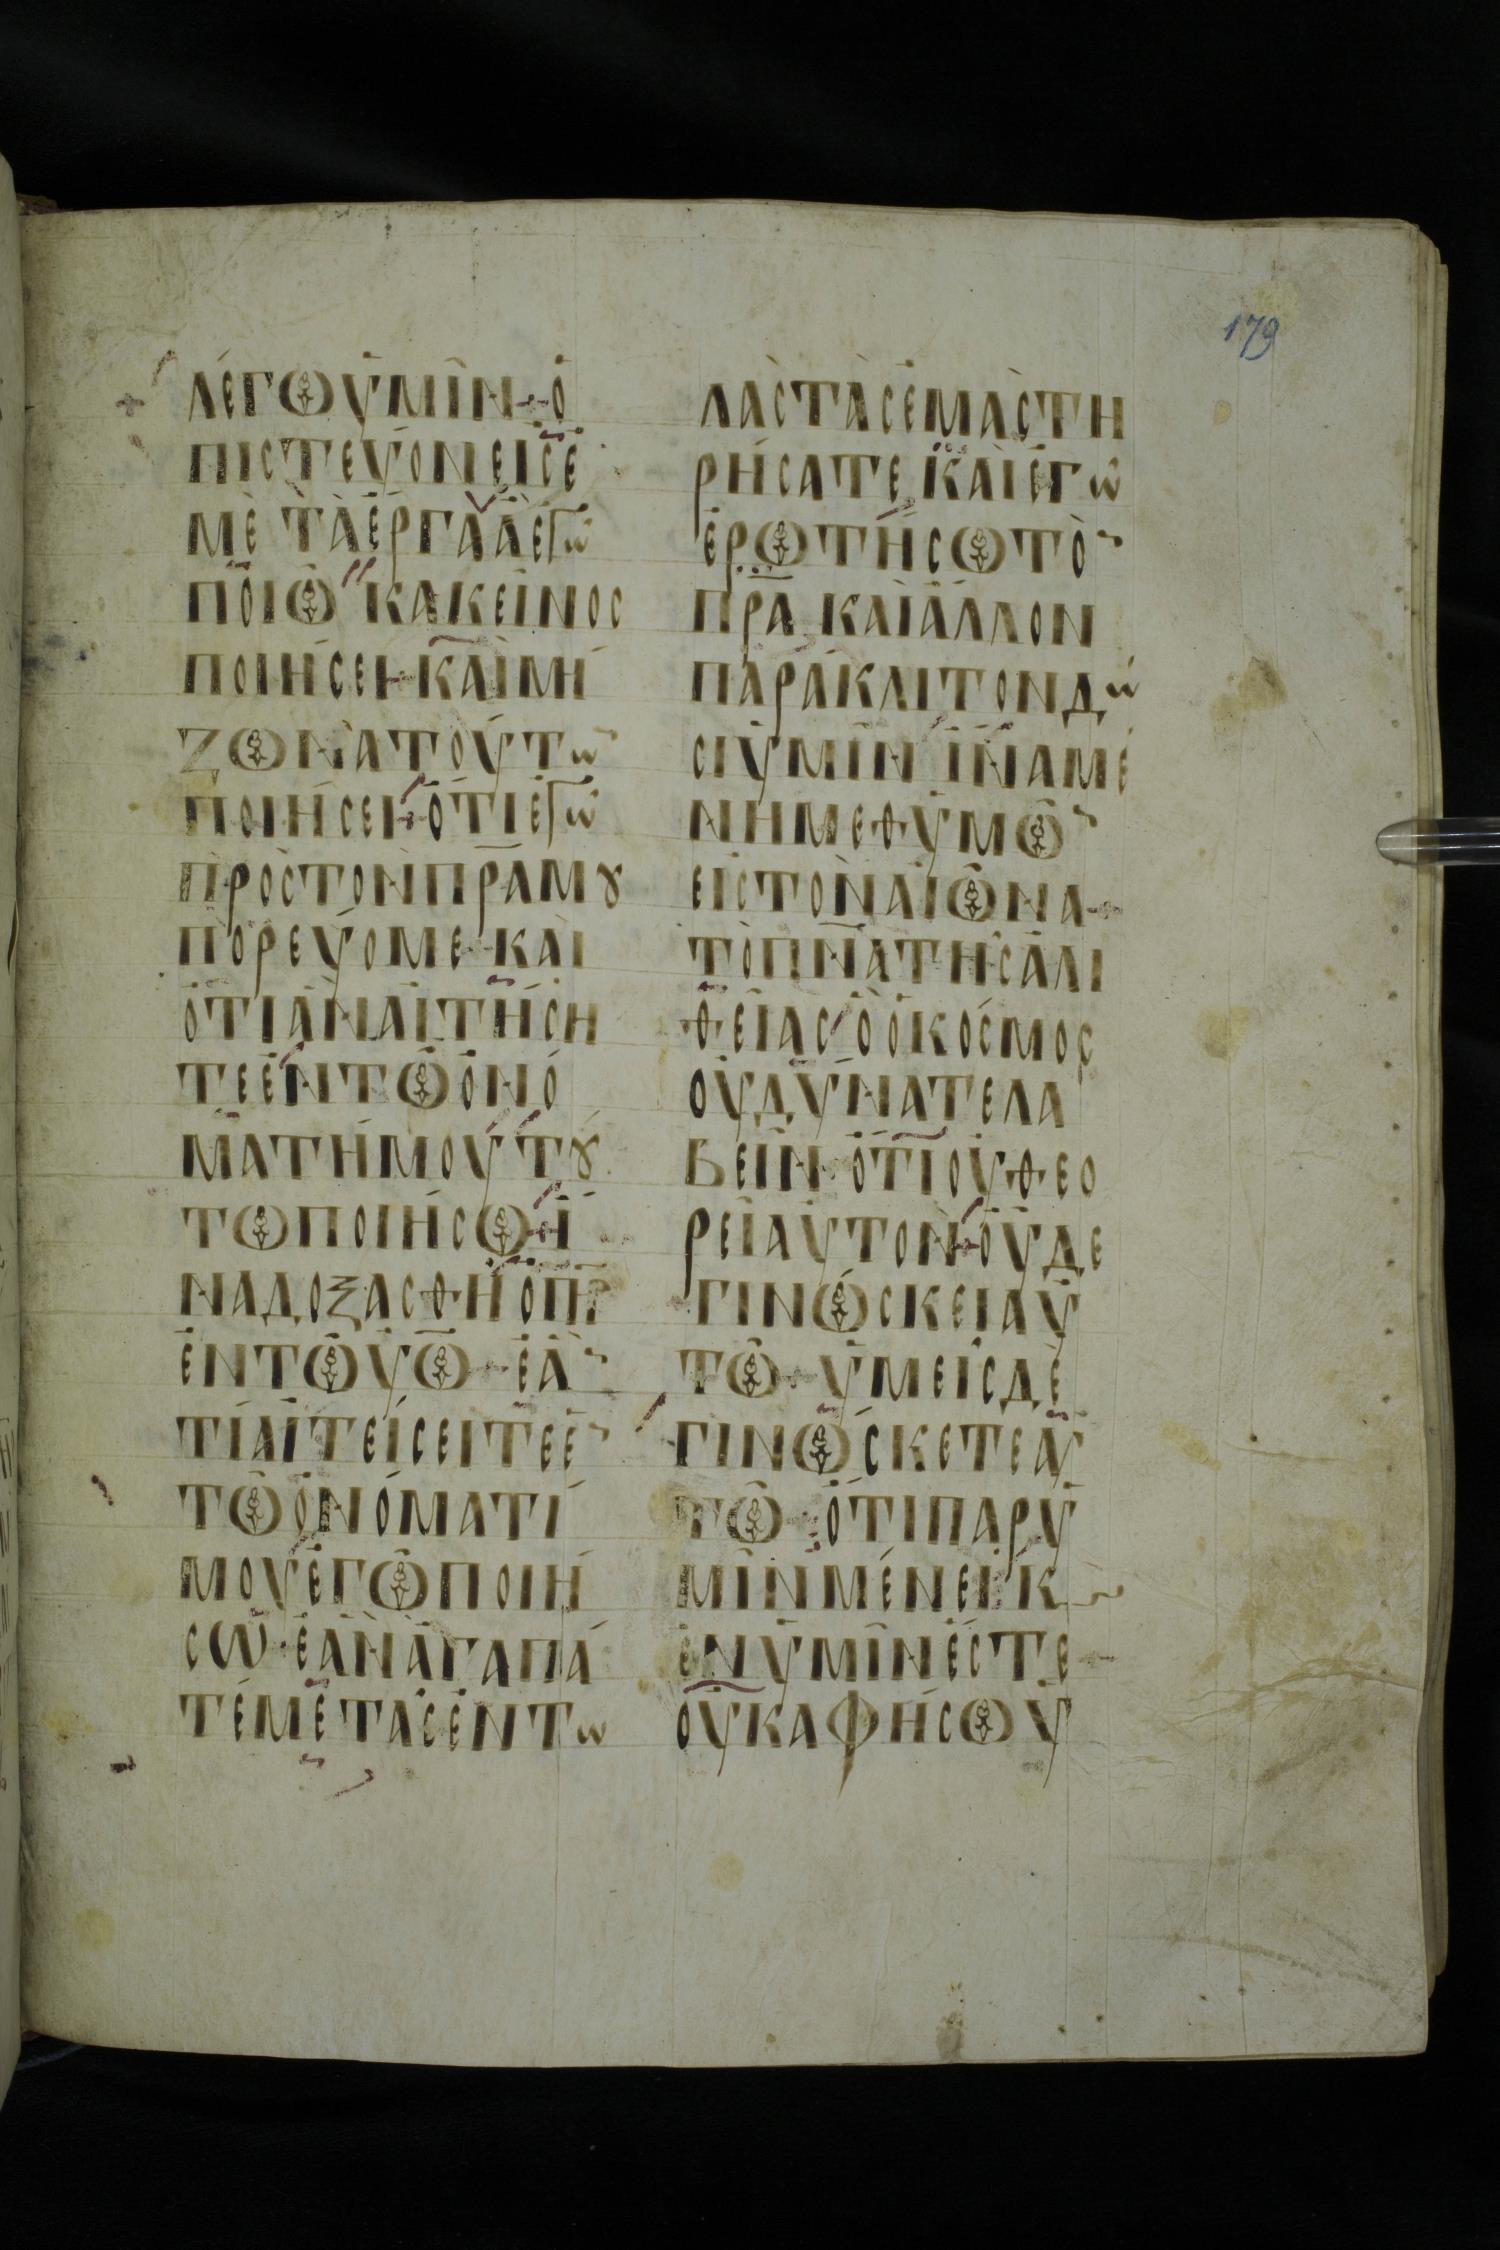 179
ΛΈΓΩ ΥΜΙΝ + Ο
ΠΙΣΤΕΥΟΝ ΕΙΣ Ε
ΜΕ ΤΑ ΕΡΓΑ Α ΕΓΩ
ΠΟΙΩ ΚΑΚΕΙΝΟΣ
ΠΟΙΗΣΕΙ + ΚΑΙ ΜΗ
ΖΩΝΑ ΤΟΥΤΩ
ΠΟΙΗΣΕΙ + ΟΤΙ ΕΓΩ
ΠΡΟΣ ΤΟΝ ΠΡΑ ΜΟΥ
ΠΟΡΕΥΟΜΕ ΚΑΙ
ΟΤΙ ΑΝ ΑΙΤΗΣΗ
ΤΕ ΕΝ ΤΩ ΟΝΟ
ΜΑΤΗ ΜΟΥ ΤΟΥ
ΤΩ ΠΟΙΗΣΩ + Ι
ΝΑ ΔΟΞΑΣΘΗ Ο ΠΗΡ
ΕΝ ΤΩ ΥΩ + ΕΑ
ΤΙ ΑΙΤΕΙΣΕΙΤΕ Ε
ΤΩ ΟΝΟΜΑΤΙ
ΜΟΥ ΕΓΩ ΠΟΙΗ
ΣΩ · ΕΑΝ ΑΓΑΠΑ
ΤΕ ΜΕ ΤΑΣ ΕΝΤΩ
ΛΑΣ ΤΑΣ ΕΜΑΣ ΤΗ
ΡΗΣΑΤΕ ΚΑΙ ΕΓΩ
ΕΡΩΤΗΣΩ ΤΟ
ΠΡΑ ΚΑΙ ΑΛΛΟΝ
ΠΑΡΑΚΛΙΤΟΝ ΔΩ
ΣΙ ΥΜΙΝ ΙΝΑ ΜΕ
ΝΗ ΜΕΘ ΥΜΩ
ΕΙΣ ΤΟΝ ΑΙΩΝΑ +
ΤΟ ΠΝΑ ΤΗΣ ΑΛΙ
ΘΕΙΑΣ Ο Ο ΚΟΣΜΟΣ
ΟΥ ΔΥΝΑΤΕ ΛΑ
ΒΕΙΝ ΟΤΙ ΟΥ ΘΕΟ
ΡΕΙ ΑΥΤΟΝ + ΟΥΔΕ
ΓΙΝΩΣΚΕΙ ΑΥ
ΤΩ + ΥΜΕΙΣ ΔΕ
ΓΙΝΩΣΚΕΤΕ ΑΥ
ΤΩ + ΟΤΙ ΠΑΡ Υ
ΜΙΝ ΜΕΝΕΙ + Κ
ΕΝ ΥΜΙΝ ΕΣΤΕ +
ΟΥΚ ΑΦΗΣΩ Υ